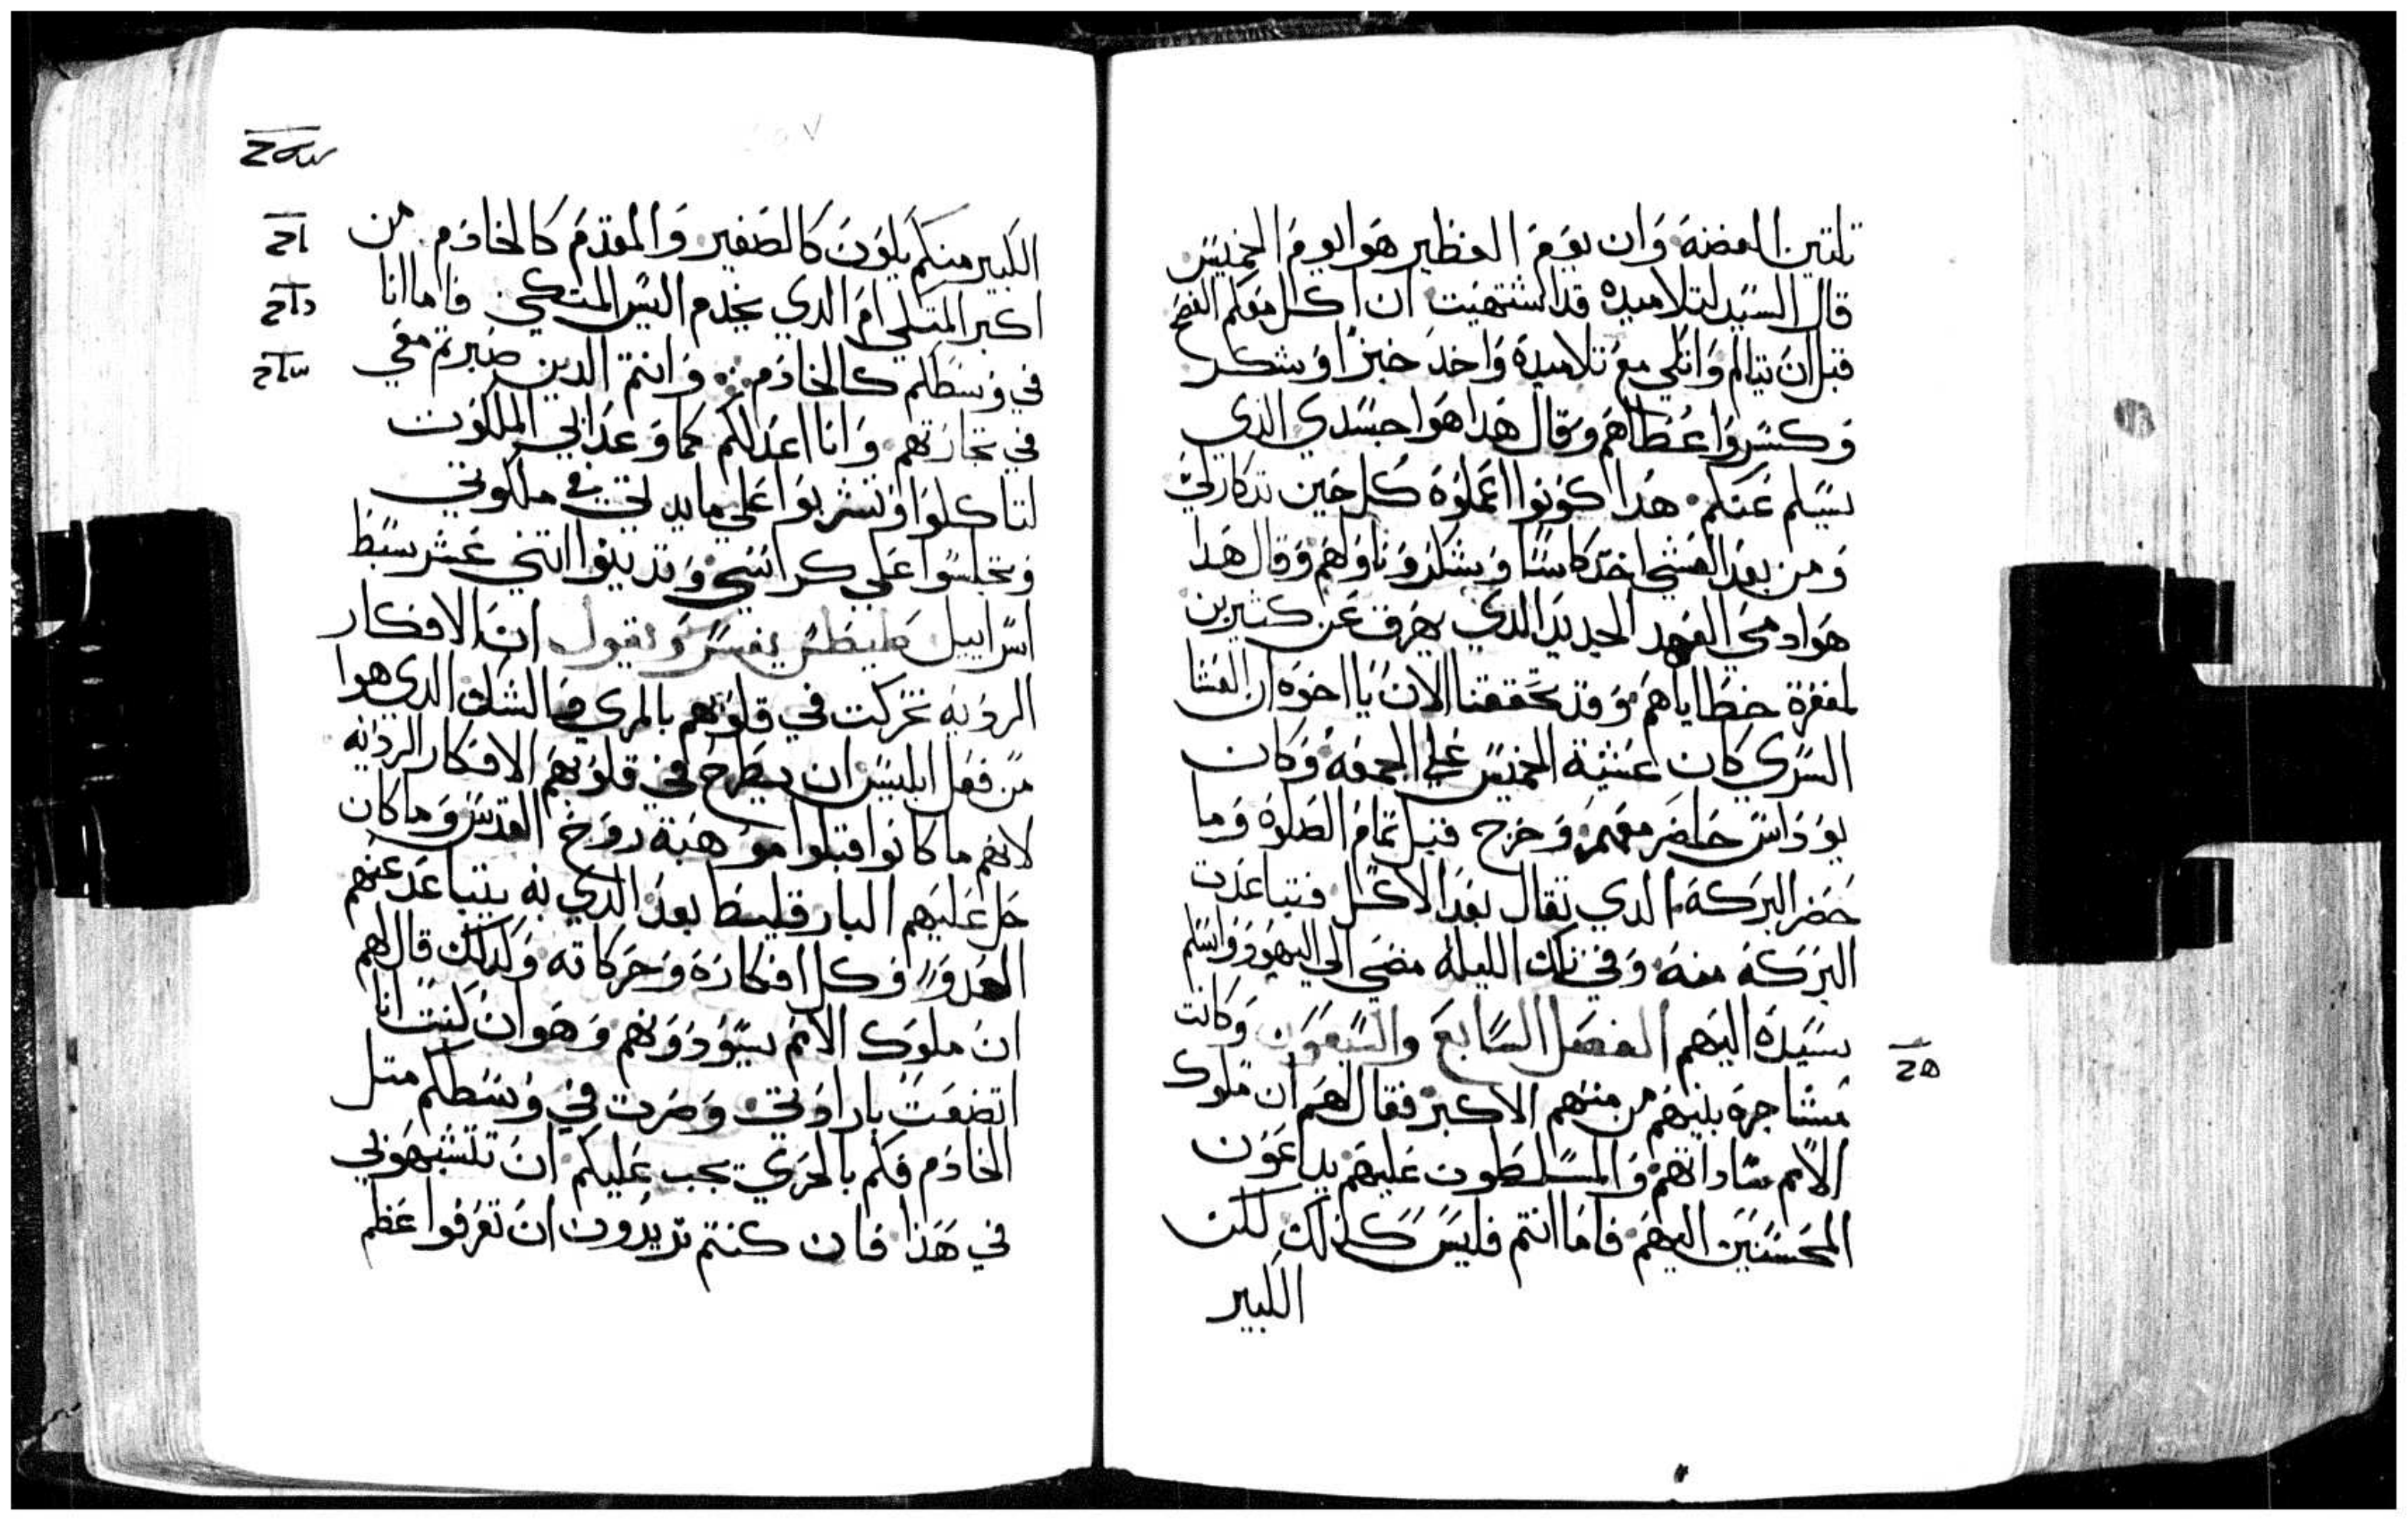 تلتين الفضة وان يوم الفطير هو اليوم الخميس
قال السيد لتلاميذه قد اشتهيت ان اكل معكم الفصح
قبل ان يتالم واتكي مع تلاميذه واخد خبزا وشكر
وكسر واعطاهم وقال هدا هوا جسدي الدي
يسلم عنكم هدا كونوا اعملوه كل حين تدكار لي
ومن بعد العشي اخد كاسا وشكر وناولهم وقال هدا
هوا دمي العهد الجديد الدي يهرق عن كتيرين
لمغفرة خطاياهم وقد تحققنا الان يا اخوه ان العشا
السري كان عشية الخميس علي الجمعة وكان
يوداس حاضر معهم وخرج قبل تمام الصلوة وما
حضر البركة الدي تقال بعد الاكل فتباعدت
البركة منه وفي تلك الليلة مضي الي اليهود واسلم
سيده اليهم الفصل السابع والسبعون وكانت
مشاجرة بينهم من منهم الاكبر فقال لهم ان ملوك
الامم ساداتهم والمسلطون عليهم يداعون
المحسنين اليهم فاما انتم فليس كذلك لكن
الكبير
الكبير منكم يكون كالصغير والمقدم كالخادم من
اكبر المتكي ام الدي يخدم اليس المتكي فاما انا
في وسطكم كالخادم وانتم الدين صبرتم معي
في تجاربهم وانا اعدلكم كما وعد ابي الملكوت
لتاكلوا وتشربوا علي مايدتي في ملكوتي
وتجلسوا علي كراسي وتدينوا اتني عشر سبط
اسراييل يفسر ويقول ان الافكار
الرديه تحركت في قلوبهم بالمري والشك الدي هوا
من فعل ابليس ان يطرح في قلوبهم الافكار الرديه
لانهم ما كانوا قبلوا موهبة روح القدس وما كان
حل عليهم البارقليط بعد الدي به يتباعد عنهم
العدو وكل افكاره وحركاته وكدلك قال لهم
ان ملوك الامم يسودونهم وهو ان كنت انا
اتضعت بارادتي وصرت في وسطكم متل
الخادم فكم بالحري يجب عليكم ان تتشبهوا بي
في هذا فان كنتم تريدون ان تعرفوا عظم